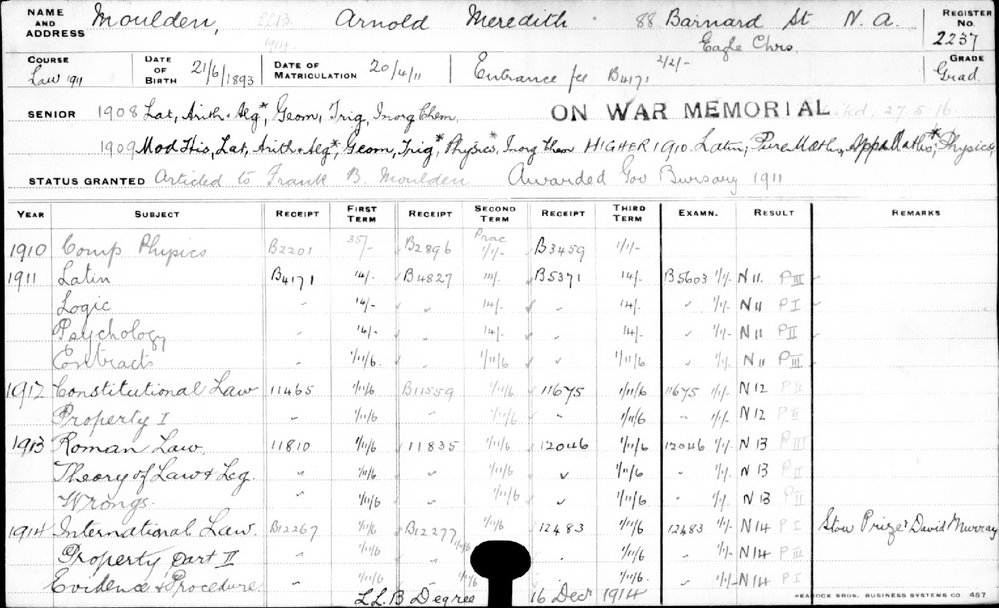 NAME AND ADDRESS Moulden, Arnold Meredith 88 Barnard St N. A. REGISTER No. 2237
1914 Eagle Chrs.
COURSE Law 1911 DATE OF BIRTH 21/6/1893 DATE OF MATRICULATION 20/4/11 Entrance fee B4171 2/2/- GRADE Grad.
SENIOR 1908 Lat, Arith & Alg*, Geom, Trig, Inorg Chem, ON WAR MEMORIAL 27.5.16
1909 Mod His, Lat, Arith & Alg*, Geom, Trig*, Physics*, Inorg Chem HIGHER 1910 Latin, Pure Maths, App Maths*, Physics
STATUS GRANTED Articled to Frank B. Moulden Awarded Gov Bursary 1911
YEAR SUBJECT RECEIPT FIRST TERM RECEIPT SECOND TERM RECEIPT THIRD TERM EXAMN. RESULT REMARKS
1910 Comp Physics B2201 35/- B2896 Prac 1/1/- B3459 1/1/-
1911 Latin B4171 14/- B4827 14/- B5371 14/- B5603 1/1/- N 11. P III
Logic " 14/- " 14/- " 14/- " 1/1/- N 11 P I
Psychology " 14/- " 14/- " 14/- " 1/1/- N 11 P II
Contracts " 1/11/6 " 1/11/6 " 1/11/6 " 1/1/- N 11 P III
1912 Constitutional Law 11465 1/11/6 B11559 1/11/6 11675 1/11/6 11675 1/1/- N 12 P II
Property I " 1/11/6 " 1/11/6 " 1/11/6 " 1/1/- N 12 P II
1913 Roman Law. 11810 1/11/6 11835 1/11/6 12046 1/11/6 12046 1/1/- N 13 P III
Theory of Law & Leg. " 1/11/6 " 1/11/6 " 1/11/6 " 1/1/- N 13 P II
Wrongs. " 1/11/6 " 1/11/6 " 1/11/6 " 1/1/- N 13 P II
1914 International Law. B12267 1/11/6 B12277 1/11/6 12483 1/11/6 12483 1/1/- N 14 P I Stow Prize & David Murray
Property Part II " 1/11/6 " 1/11/6 " 1/11/6 " 1/1/- N 14 P III
Evidence & Procedure. " 1/11/6 " 1/11/6 1/11/6. " 1/1/- N 14 P I
LL.B Degree 16 Decr 1914
PEACOCK BROS. BUSINESS SYSTEMS CO. 457